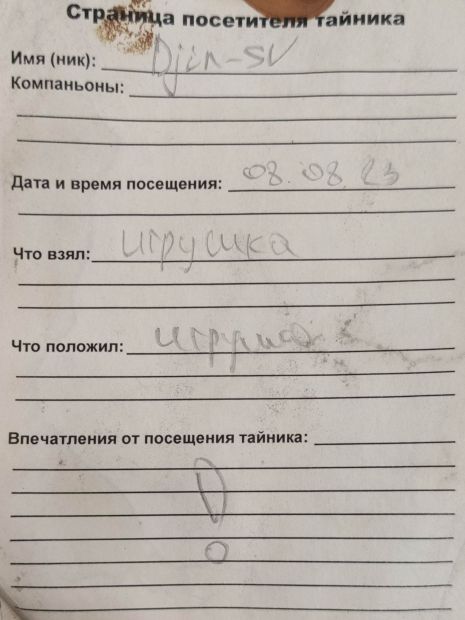 Страница посетителя тайника
Имя (ник): Djin-SV
Компаньоны:
Дата и время посещения: 08.08.23
Что взял: игрушка
Что положил: игрушка
Впечатления от посещения тайника:
!